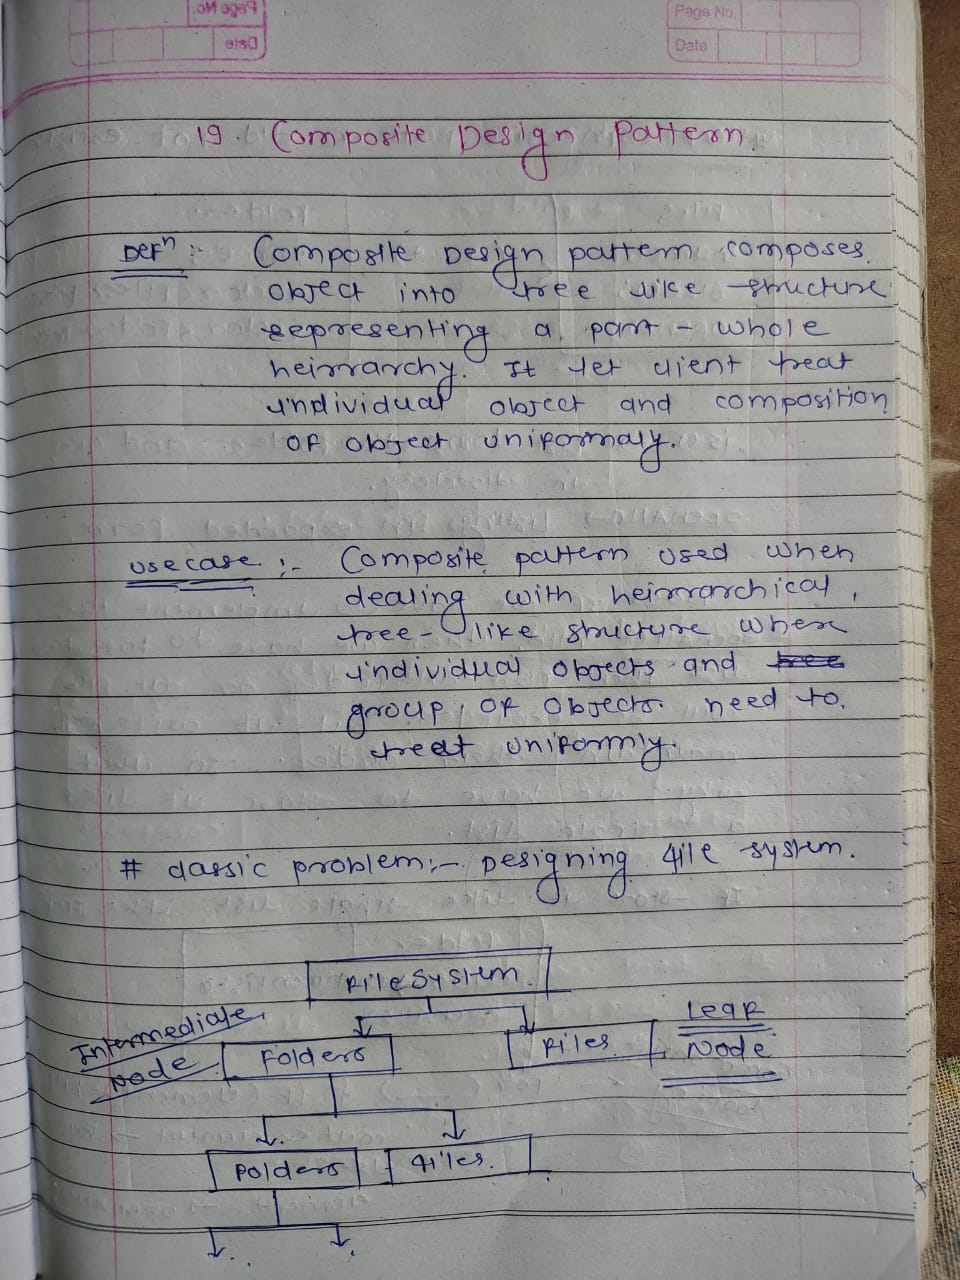 Page No.
Date
19. Composite Design Pattern.
Defⁿ :- Composite Design pattern composes
object into tree like structure
representing a part - whole
heirrarchy. It let client treat
individual object and composition
of object uniformaly.
use case :- Composite pattern used when
dealing with heirrarchical,
tree-like structure where
individual objects and tree
group of objects need to
treat uniformly.
# classic problem :- Designing file system.
File System
Intermediate Node
Folders
Files
Leaf Node
Folders
Files.